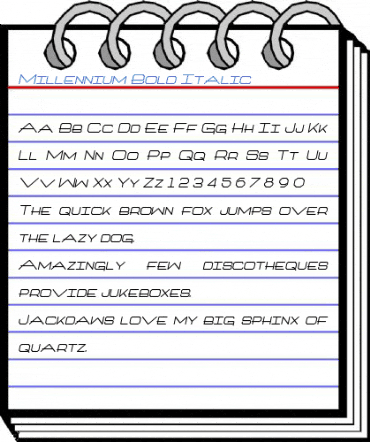 Millennium Bold Italic
Aa Bb Cc Dd Ee Ff Gg Hh Ii Jj Kk
Ll Mm Nn Oo Pp Qq Rr Ss Tt Uu
Vv Ww Xx Yy Zz 1 2 3 4 5 6 7 8 9 0
The quick brown fox jumps over
the lazy dog.
Amazingly few discotheques
provide jukeboxes.
Jackdaws love my big sphinx of
quartz.